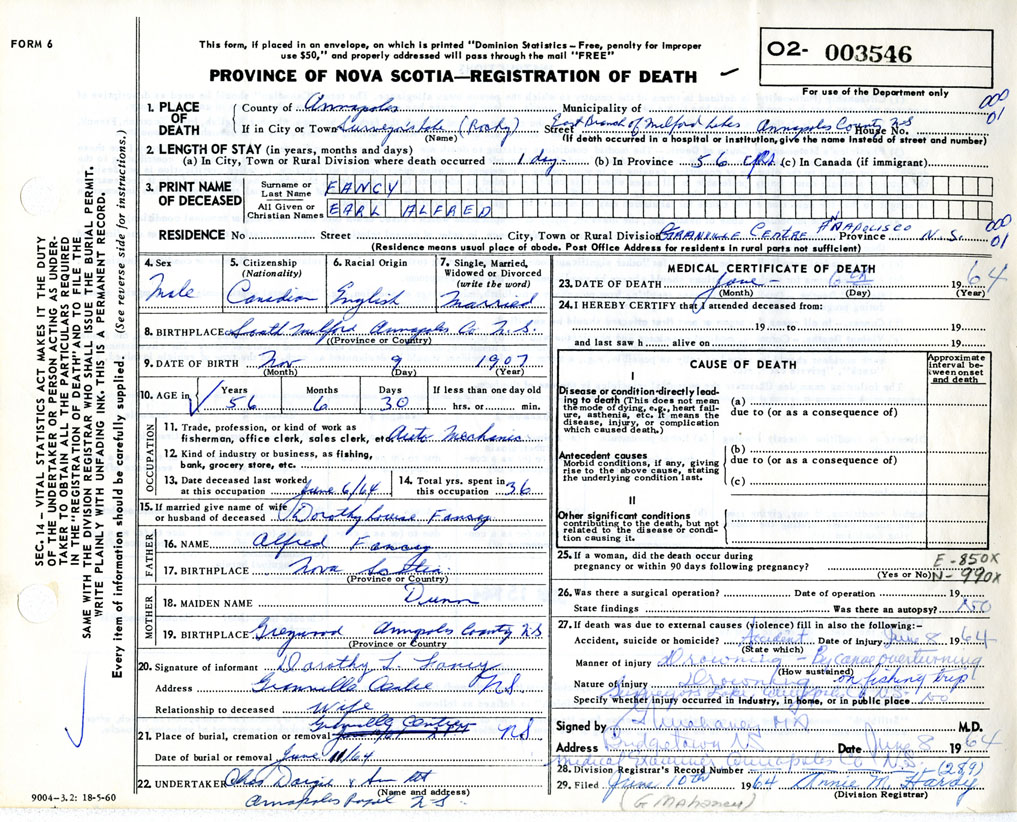 FORM 6
This form, if placed in an envelope, on which is printed "Dominion Statistics – Free, penalty for improper
use $50," and properly addressed will pass through the mail "FREE"
PROVINCE OF NOVA SCOTIA—REGISTRATION OF DEATH
O2- 003546
For use of the Department only
000
01
SEC. 14 – VITAL STATISTICS ACT MAKES IT THE DUTY
OF THE UNDERTAKER OR PERSON ACTING AS UNDER-
TAKER TO OBTAIN ALL THE PARTICULARS REQUIRED
IN THE "REGISTRATION OF DEATH" AND TO FILE THE
SAME WITH THE DIVISION REGISTRAR WHO SHALL ISSUE THE BURIAL PERMIT.
WRITE PLAINLY WITH UNFADING INK. THIS IS A PERMANENT RECORD.
Every item of information should be carefully supplied. (See reverse side for instructions.)
1. PLACE OF DEATH
County of Annapolis Municipality of
If in City or Town Surveyor's Lake (Rocky) Street East Branch of Milford Lakes Annapolis County N.S House No.
(Name) (If death occurred in a hospital or institution, give the name instead of street and number)
2. LENGTH OF STAY (in years, months and days)
(a) In City, Town or Rural Division where death occurred 1 day (b) In Province 56 yrs. (c) In Canada (if immigrant)
3. PRINT NAME OF DECEASED
Surname or Last Name FANCY
All Given or Christian Names EARL ALFRED
RESIDENCE No Street City, Town or Rural Division GRANVILLE CENTRE ANNAPOLIS CO Province N.S.
(Residence means usual place of abode. Post Office Address for residents in rural parts not sufficient)
000
01
4. Sex
Male
5. Citizenship
(Nationality)
Canadian
6. Racial Origin
English
7. Single, Married, Widowed or Divorced
(write the word)
Married
8. BIRTHPLACE South Milford Annapolis Co N.S.
(Province or Country)
9. DATE OF BIRTH Nov 9 1907
(Month) (Day) (Year)
10. AGE in Years Months Days If less than one day old
56 6 30 hrs. or min.
OCCUPATION
11. Trade, profession, or kind of work as
fisherman, office clerk, sales clerk, etc. Auto Mechanic
12. Kind of industry or business, as fishing,
bank, grocery store, etc.
13. Date deceased last worked at this occupation June 6/64
14. Total yrs. spent in this occupation 36
15. If married give name of wife or husband of deceased Dorothy Louise Fancy
FATHER
16. NAME Alfred Fancy
17. BIRTHPLACE Nova Scotia
(Province or Country)
MOTHER
18. MAIDEN NAME Dunn
19. BIRTHPLACE Greywood Annapolis County N.S
(Province or Country)
20. Signature of informant Dorothy L. Fancy
Address Granville Centre N.S.
Relationship to deceased Wife
Granville Centre
21. Place of burial, cremation or removal N.S
Date of burial or removal June 11/64
22. UNDERTAKER Chas Dargie & Son Ltd
(Name and address)
Annapolis Royal N.S.
9004–3.2: 18-5-60
MEDICAL CERTIFICATE OF DEATH
23. DATE OF DEATH June 6th 1964
(Month) (Day) (Year)
24. I HEREBY CERTIFY that I attended deceased from:
19... to 19...
and last saw h alive on 19...
CAUSE OF DEATH
Approximate interval between onset and death
I
Disease or condition directly lead-
ing to death (This does not mean
the mode of dying, e.g., heart fail-
ure, asthenia, etc. It means the
disease, injury, or complication
which caused death.)
(a)
due to (or as a consequence of)
Antecedent causes
Morbid conditions, if any, giving
rise to the above cause, stating
the underlying condition last.
(b)
due to (or as a consequence of)
(c)
II
Other significant conditions
contributing to the death, but not
related to the disease or condi-
tion causing it.
25. If a woman, did the death occur during
pregnancy or within 90 days following pregnancy?
(Yes or No)
E-850X
N-990X
26. Was there a surgical operation? Date of operation 19
State findings Was there an autopsy? No
27. If death was due to external causes (violence) fill in also the following:–
Accident, suicide or homicide? Accident Date of injury June 8 1964
(State which)
Manner of injury Drowning – By canoe overturning
(How sustained) on fishing trip
Nature of injury Drowning
Surveyors Lake, Annapolis Co N.S.
Specify whether injury occurred in industry, in home, or in public place no
Signed by M.D.
Address Bridgetown NS Date June 8 1964
Medical Examiner Annapolis Co N.S.
28. Division Registrar's Record Number (289)
29. Filed June 10th 1964 Annie M. Hardy
(Division Registrar)
(G Mahaney)